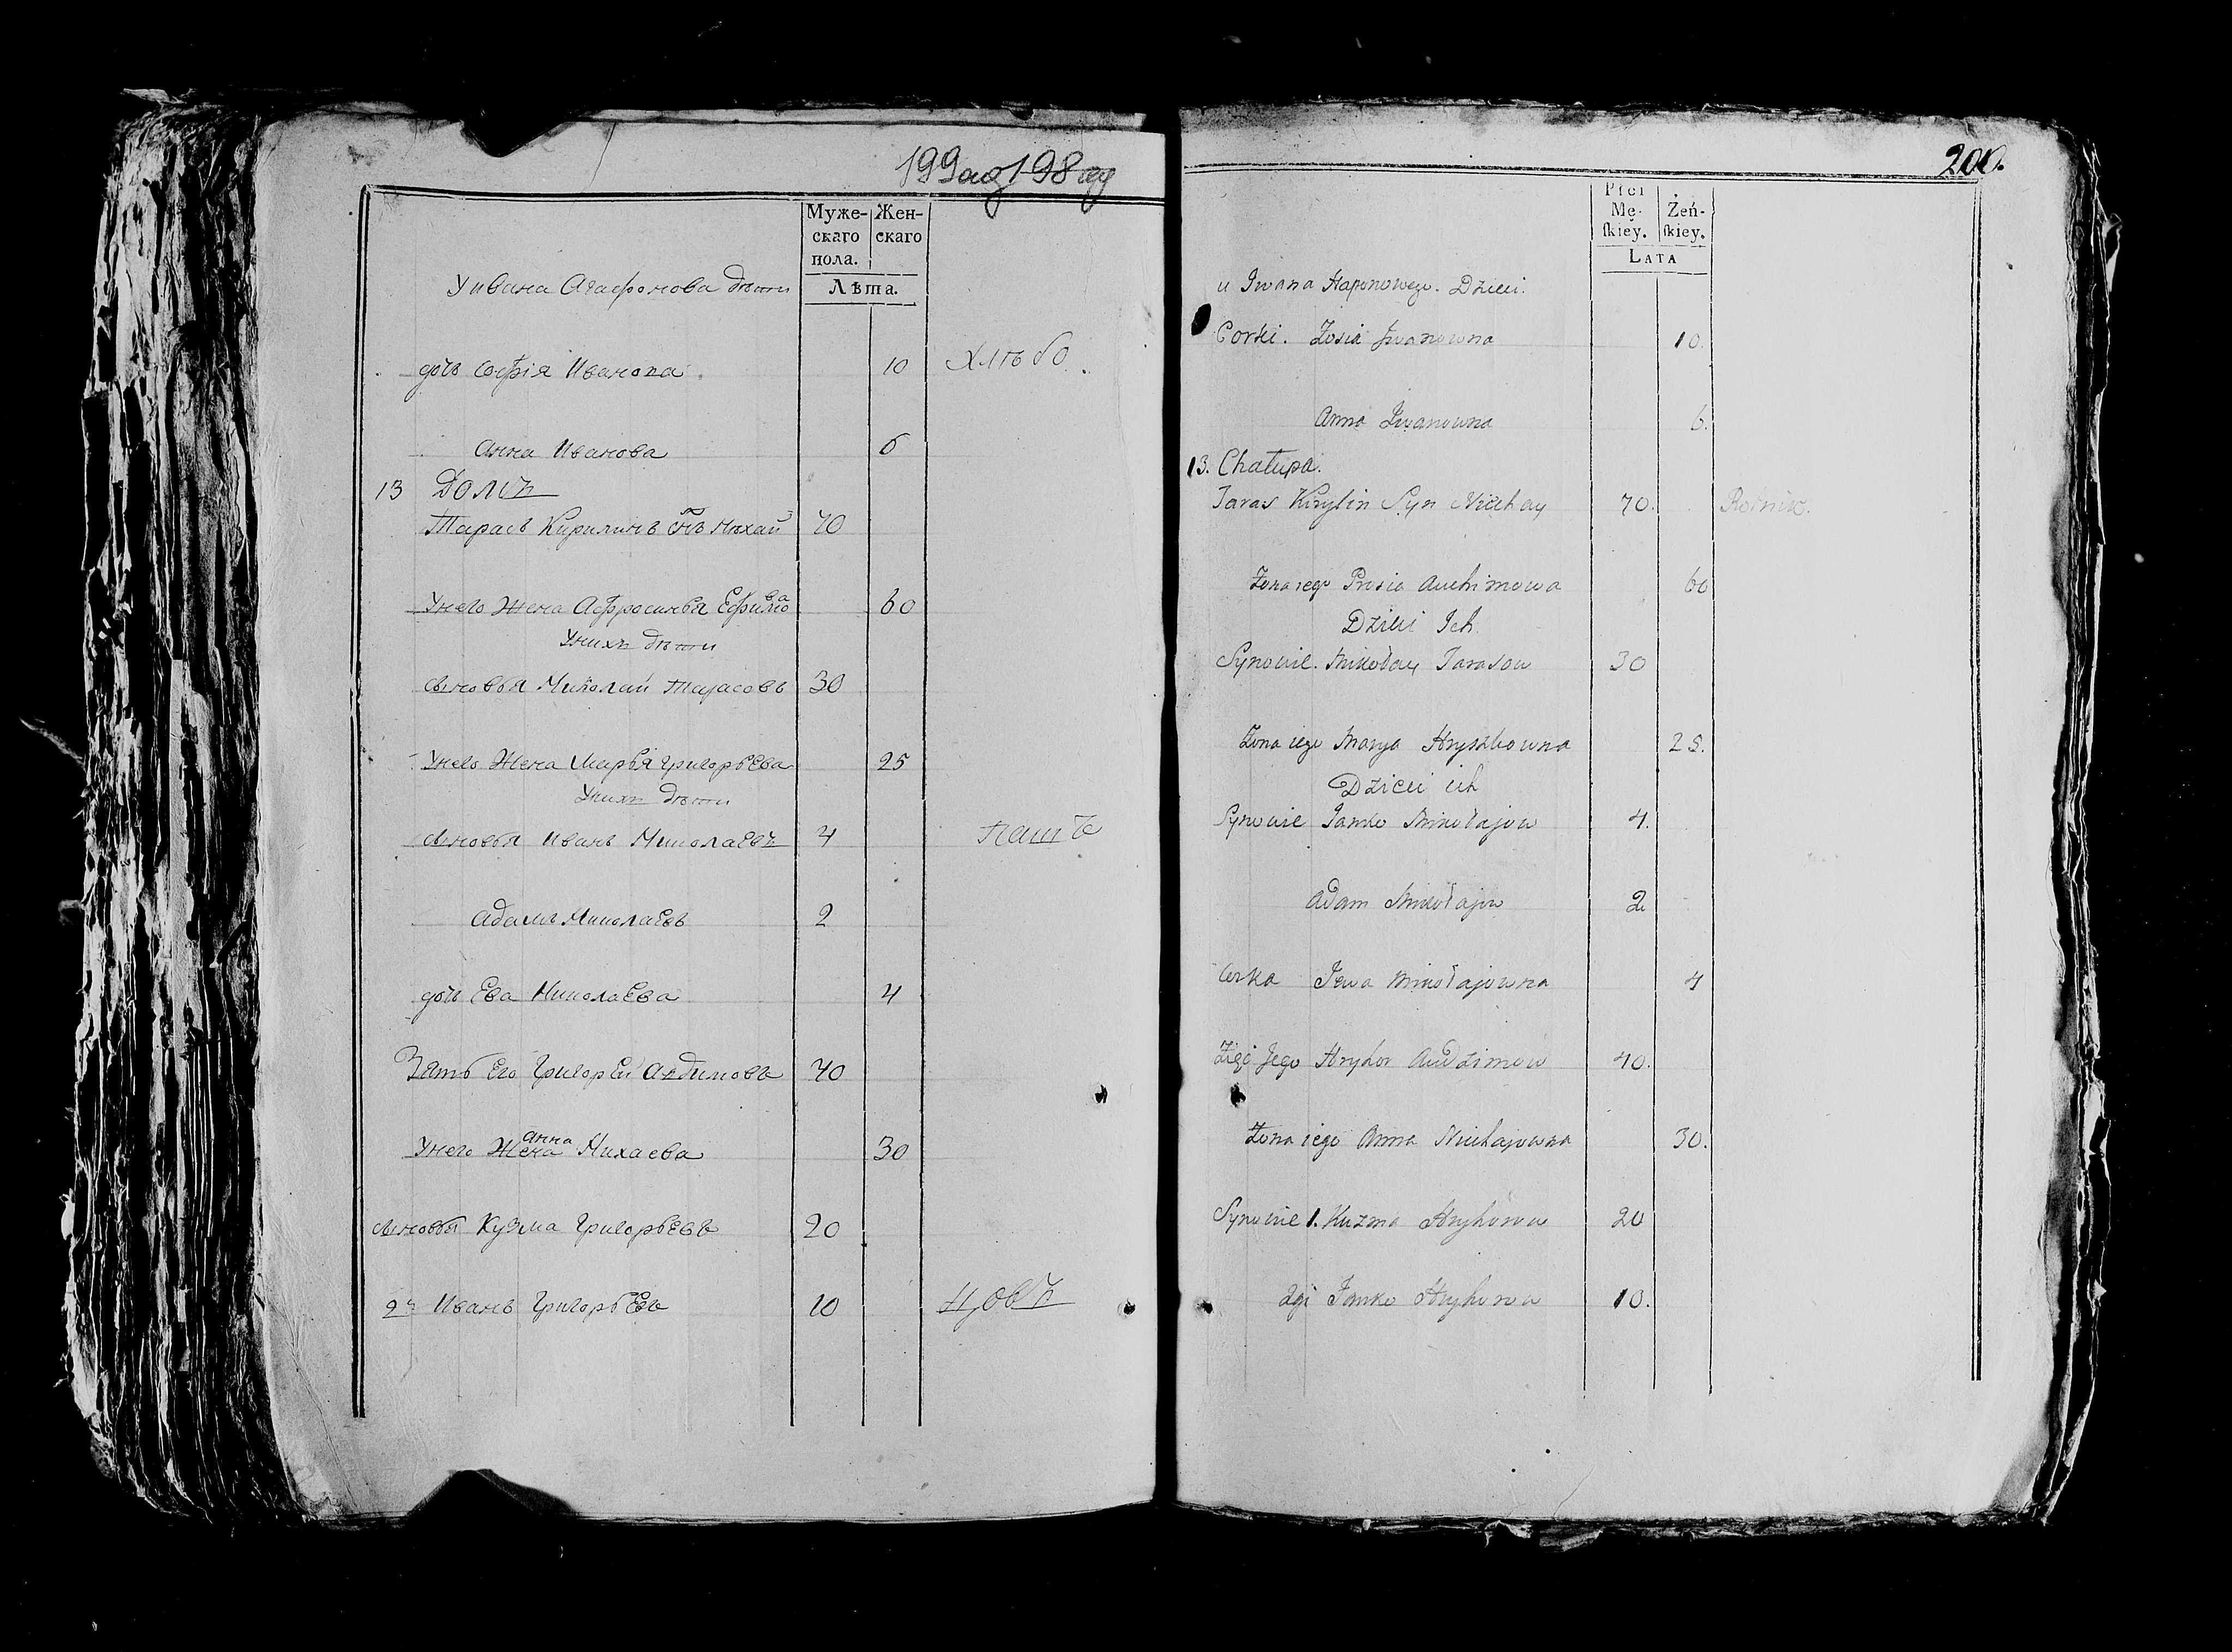 199 198
Муже-
скаго
пола.
Жен-
скаго
Лѣта.
У Ивана Агафонова дѣти
дочь Софія Иванова 10 Хлѣбо
Анна Иванова 6
13 Домъ
Тарасъ Кирилинъ Сꙑнъ Михай 70
У него Жена Афросинья Ефимова 60
У нихъ дѣти
Сыновья Миколай Тарасовъ 30
У него Жена Марья Григорьева 25
У нихъ дѣти
Сыновья Иванъ Миколаевъ 4 Паш
Адамъ Миколаевъ 2
дочь Ева Миколаева 4
Зять Его Григорей Авдимовъ 40
У него Жена Анна Михаева 30
Сыновья Кузма Григорьевъ 20
2й Иванъ Григорьевъ 10
200.
Płci
Mę-
ſkiey.
Żeń-
ſkiey.
LATA
u Iwana Haponowego. Dzieci.
Corki. Zosia Iwanowna 10.
Anna Iwanowna 6.
13. Chałupa.
Taras Kirylin Syn Michay 70. Rolnik.
Żona iego Prosia Auchimowa 60
Dzieci Ich
Synowie. Mikołay Tarasow 30
Żona iego Marya Hryszkowna 25.
Dzieci ich
Synowie Janko Mikołajow 4.
Adam Mikołajow 2
Corka Jewa Mikołajowna 4
Zięć Jego Hryhor Audzimow 40.
Żona iego Anna Michajowna 30.
Synowie 1. Kuzma Hryhorow 20
2gi Janko Hryhorow 10.